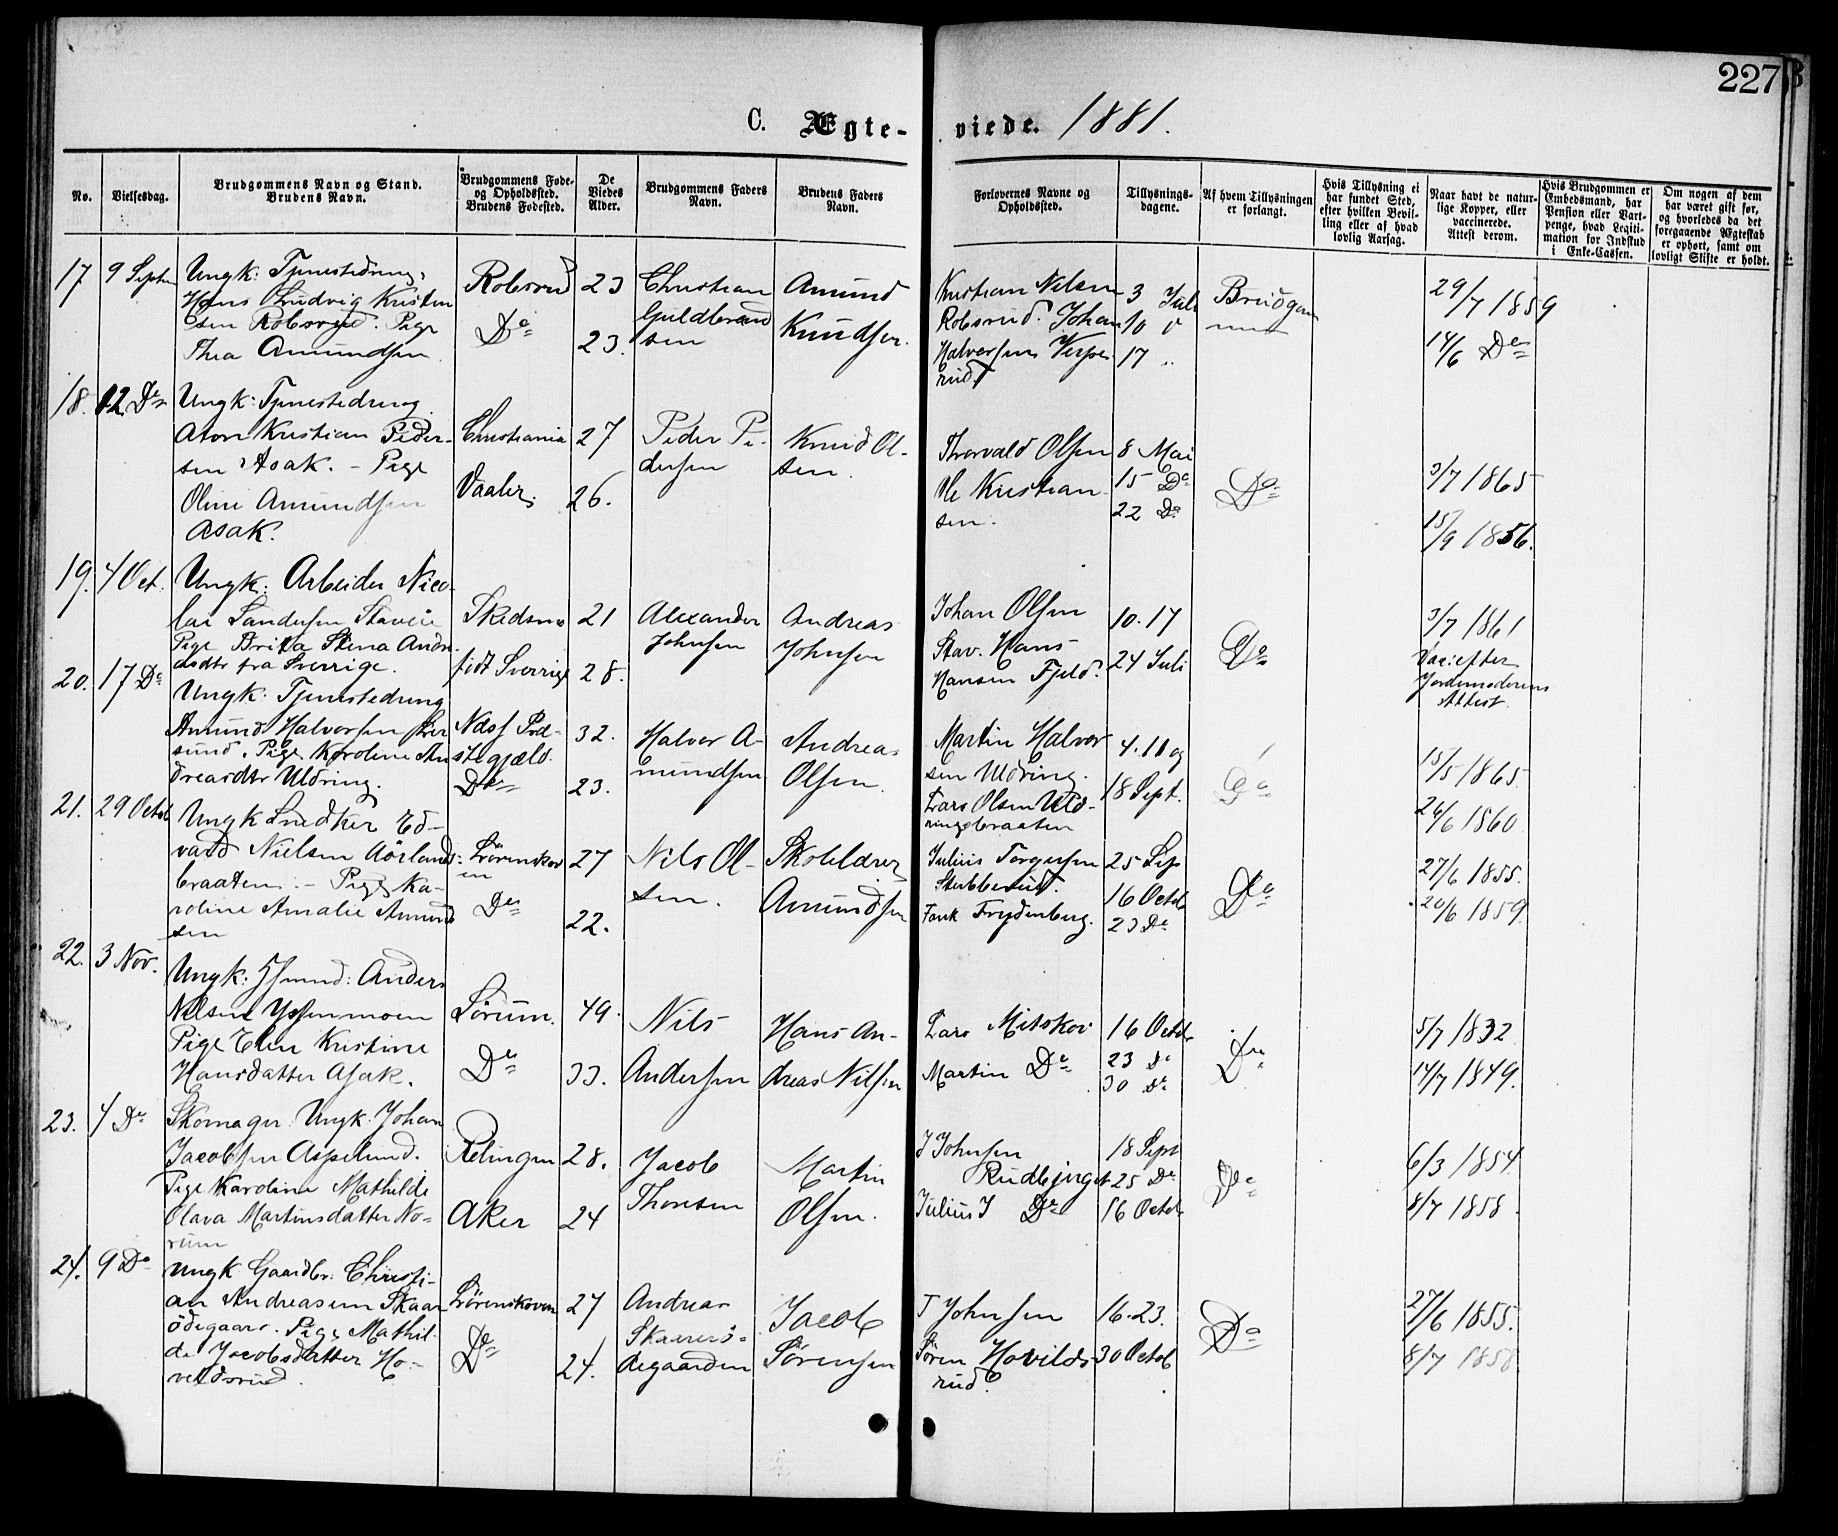 227
C. Ægte- viede. 1881.
No.
Vielsesdag.
Brudgommens Navn og Stand.
Brudens Navn.
Brudgommens Føde-
og Opholdssted.
Brudens Fødested.
De
Viedes
Alder.
Brudgommens Faders
Navn.
Brudens Faders
Navn.
Forlovernes Navne og
Opholdssted.
Tillysnings-
dagene.
Af hvem Tillysningen
er forlangt.
Hvis Tillysning ei
har fundet Sted,
efter hvilken Bevil-
ling eller af hvad
lovlig Aarsag.
Naar havt de natur-
lige Kopper, eller
vaccinerede.
Attest derom.
Hvis Brudgommen er
Embedsmand, har
Pension eller Vart-
penge, hvad Legiti-
mation for Indskud
i Enke-Cassen.
Om nogen af dem
har været gift før,
og hvorledes da det
foregaaende Ægteskab
er ophørt, samt om
lovligt Skifte er holdt.
17 9 Septr
Ungk: Tjenestedreng
Hans Ludvig Kristen
sen Robsrud. Pige
Thea Amundsen
Robsrud
Do
23
23.
Christian
Guldbrand
sen
Amund
Knudsen.
Kristian Nilsen
Robsrud. Johan
Halvorsen Vesper
rud
3 Juli
10 "
17 "
Brudgom
men
29/7 1859
14/6 Do
18. 12 Do
Ungk: Tjenestedreng
Aton Kristian Peder-
sen Asak. - Pige
Oline Amundsen
Asak.
Christiania
Vaaler
27
26.
Peder Pe-
dersen
Knud Ol-
sen.
Thorvald Olsen
Ole Kristian
sen.
8 Mai
15 Do
22 Do
Do
3/7 1865
15/9 1856.
19. 4 Oct.
Ungk: Arbeider Nico-
lai Sandersen Staveie
Pige Brita Stina Andre
asdtr fra Sverrige.
Skedsmo
født Sverrige
21
28.
Alexander
Johnsen
Andreas
Johnsen
Johan Olsen
Stav. Hans
Hansen Fjeld.
10. 17
24 Juli
Do
3/7 1861
Vac: efter
Jordemoderens
Attest.
20. 17 Do
Ungk: Tjenestedreng
Amund Halvorsen
sund. Pige Karoline An
dreasdtr Uldring.
Næs Præ-
stegjæld.
Do
32.
23.
Halvor A-
mundsen
Andreas
Olsen.
Martin Halvor
sen Uldring.
Lars Olsen Uld-
ringsbraaten
4. 11 og
18 Sept.
Do
15/5 1865
26/6 1860
21. 29 Octob
Ungk Snedker Ed-
vard Nielsen Aørlands-
braaten. - Pige Ka-
roline Amalie Amund
sen
Lørenskov
en
Do
27
22.
Nils Ol-
sen.
Skoleldrer
Amundsen
Julius Torgersen
Stubberud.
Fank Frydenberg.
25 Sep
16 Octob
23 Do
Do
27/6 1855.
20/6 1859.
22. 3 Nov.
Ungk: Hsmd: Anders
Nilsen Yssenmoen
Pige Elen Kristine
Hansdatter Asak.
Sørum.
Do
49.
33.
Nils
Andersen
Hans An-
dreas Nilsen
Lars Mitskov
Martin Do
16 Octob
23 Do
30 Do
Do
5/7 1832
14/7 1849.
23. 4 Do
Skomager. Ungk. Johan
Jacobsen Aspelund.
Pige Karoline Mathilde
Olava Martinsdatter No-
rum
Relingen
Aker
28.
24
Jacob
Thoresen
Martin
Olsen.
J Johnsen
Rudbjerget
Julius J Do
18 Sept
25 Do
16 Octob
Do
6/3 1854
8/7 1858.
24. 9 Do
Ungk Gaardbr. Christi-
an Andreasen Skaar
ødegaard. Pige Mathil-
de Jacobsdatter Ho-
veldsrud.
Lørenskoven
Do
27
24.
Andreas
Skarers-
ødegaarden
Jacob
Sørensen
T Johnsen
Søren Hovilds-
rud.
16. 23.
30 Octob
Do
27/6 1855.
8/7 1858